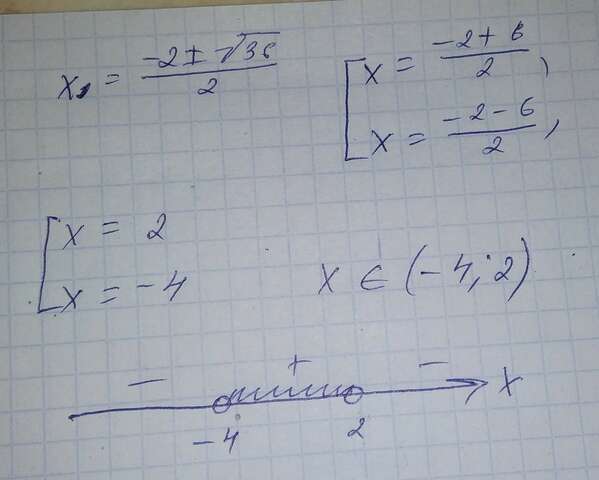 x₁ = (-2 ± √36)/2
[ x = (-2 + 6)/2,
x = (-2 - 6)/2,
[ x = 2
x = -4
x ∈ (-4; 2)
- + - x
-4 2